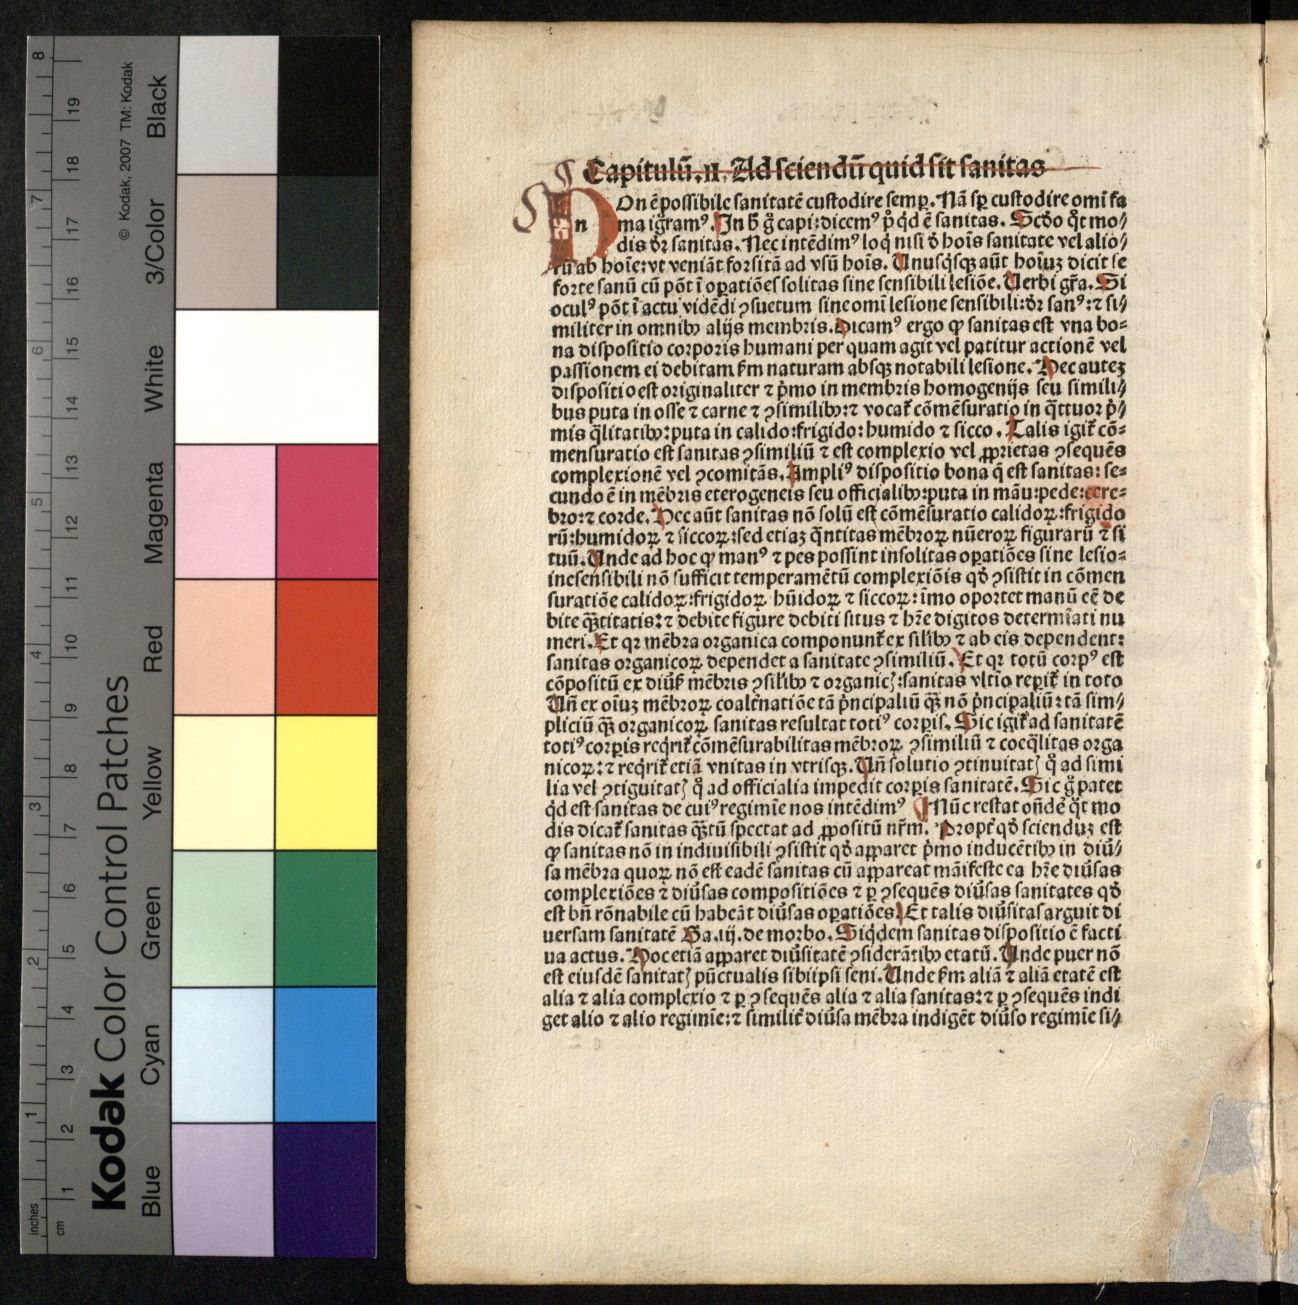 ¶ Capitulū.II. Ad sciendū quid sit sanitas
NOn ē possibile sanitatē custodire semꝑ. Nā sꝑ custodire omī fa
n
ma igr̄amꝰ. In h̄ g̊ capi: dicemꝰ p̊ qd̓ ē sanitas. Scd̓o q̊t mo⸗
dis dr̄ sanitas. Nec intēdimꝰ loq̇ nisi d̓ hoīs sanitate vel alio⸗
rū ab hoīe: vt veniāt forsitā ad vsū hoīs. Unusq̇sqꝫ aūt hoīuꝫ dicit se
forte sanū cū pōt ī oꝑatiōes solitas sine sensibili lesiōe. Uerbi gr̄a. Si
oculꝰ pōt ī actu vidēdi ꝯsuetum sine omī lesione sensibili: dr̄ sanꝰ: ⁊ si⸗
militer in omnibꝰ alijs membris. Dicamꝰ ergo ꝙ sanitas est vna bo⸗
na dispositio corporis humani per quam agit vel patitur actionē vel
passionem ei debitam ẜm naturam absqꝫ notabili lesione. Hec auteꝫ
dispositio est originaliter ⁊ p̊mo in membris homogenijs seu simili⸗
bus puta in osse ⁊ carne ⁊ ꝯsimilibꝰ: ⁊ vocat̄ cōmēsuratio in q̄ttuor p̊⸗
mis q̄litatibꝰ: puta in calido: frigido: humido ⁊ sicco. Talis igit̄ cō⸗
mensuratio est sanitas ꝯsimiliū ⁊ est complexio vel ꝓprietas ꝯsequēs
complexionē vel ꝯcomitās. Ampliꝰ dispositio bona q̄ est sanitas: se⸗
cundo ē in mēbris eterogeneis seu officialibꝰ: puta in māu: pede: cere⸗
bro: ⁊ corde. Hec aūt sanitas nō solū est cōmēsuratio calidoꝝ: frigido
rū: humidoꝝ ⁊ siccoꝝ: sed etiaꝫ q̄ntitas mēbroꝝ nūeroꝝ figurarū ⁊ si
tuū. Unde ad hoc ꝙ manꝰ ⁊ pes possint insolitas oꝑatiōes sine lesio⸗
ne sensibili nō sufficit temperamētū complexiōis qd̓ ꝯsistit in cōmen
suratiōe calidoꝝ: frigidoꝝ hūidoꝝ ⁊ siccoꝝ: imo oportet manū eē de
bite q̄ntitatis: ⁊ debite figure debiti situs ⁊ hr̄e digitos determīati nu
meri. Et qꝛ mēbra organica componunt̄ ex sil̄ibꝰ ⁊ ab eis dependent:
sanitas organicoꝝ dependet a sanitate ꝯsimiliū. Et qꝛ totū corpꝰ est
cōpositū ex diūs̄ mēbris ꝯsil̄ibꝰ ⁊ organicꝭ: sanitas vltīo reꝑit̄ in toto
Un̄ ex oīuꝫ mēbroꝝ coalt̄natiōe tā p̊ncipaliū q̄ꝫ nō p̊ncipaliū: tā sim⸗
pliciū q̄ꝫ organicoꝝ sanitas resultat totiꝰ corꝑis. Sic igit̄ ad sanitatē
totiꝰ corꝑis req̇rit̄ cōmēsurabilitas mēbroꝝ ꝯsimiliū ⁊ coeq̄litas orga
nicoꝝ: ⁊ req̇rit̄ etiā vnitas in vtrisqꝫ. Un̄ solutio ꝯtinuitatꝭ q̊ ad simi
lia vel ꝯtiguitatꝭ q̊ ad officialia impedit corꝑis sanitatē. Sic g̊ patet
qd̓ est sanitas de cuiꝰ regimīe nos intēdimꝰ ¶ Nūc restat on̄dē q̊t mo
dis dicat̄ sanitas q̄ꝫtū spectat ad ꝓpositū nr̄m. Propt̄ qd̓ scienduꝫ est
ꝙ sanitas nō in indiuisibili ꝯsistit qd̓ apparet p̊mo inducētibꝰ in diū⸗
sa mēbra quoꝝ nō est eadē sanitas cū appareat māifeste ea hr̄e diūsas
complexiōes ⁊ diūsas compositiōes ⁊ ꝑ ꝯsequēs diūsas sanitates qd̓
est bn̄ rōnabile cū habeāt diūsas oꝑatiōes. Et talis diūsitas arguit di
uersam sanitatē Ga.iij. de morbo. Siqd̓em sanitas dispositio ē facti
ua actus. Hoc etiā apparet diūsitatē ꝯsiderātibꝰ etatū. Unde puer nō
est eiusdē sanitatꝭ pūctualis sibiipsi seni. Unde ẜm aliā ⁊ aliā etatē est
alia ⁊ alia complexio ⁊ ꝑ ꝯsequēs alia ⁊ alia sanitas: ⁊ ꝑ ꝯsequēs indi
get alio ⁊ alio regimīe: ⁊ similit̄ diūsa mēbra indigēt diūso regimīe si⸗
Kodak Color Control Patches
© Kodak, 2007 TM: Kodak
Blue Cyan Green Yellow Red Magenta White 3/Color Black
inches 1 2 3 4 5 6 7 8
cm 1 2 3 4 5 6 7 8 9 10 11 12 13 14 15 16 17 18 19